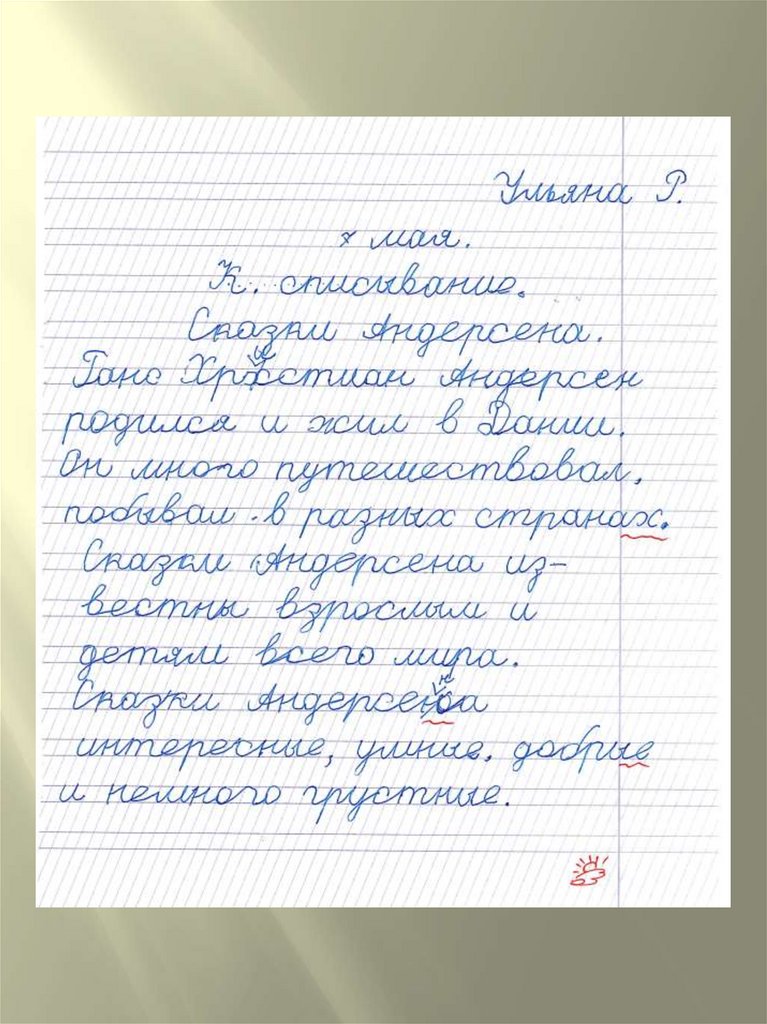 Ульяна Р.
7 мая.
К. списывание.
Сказки Андерсена.
Ганс Христиан Андерсен
родился и жил в Дании.
Он много путешествовал,
побывал в разных странах.
Сказки Андерсена из-
вестны взрослым и
детям всего мира.
Сказки Андерсена
интересные, умные, добрые
и немного грустные.